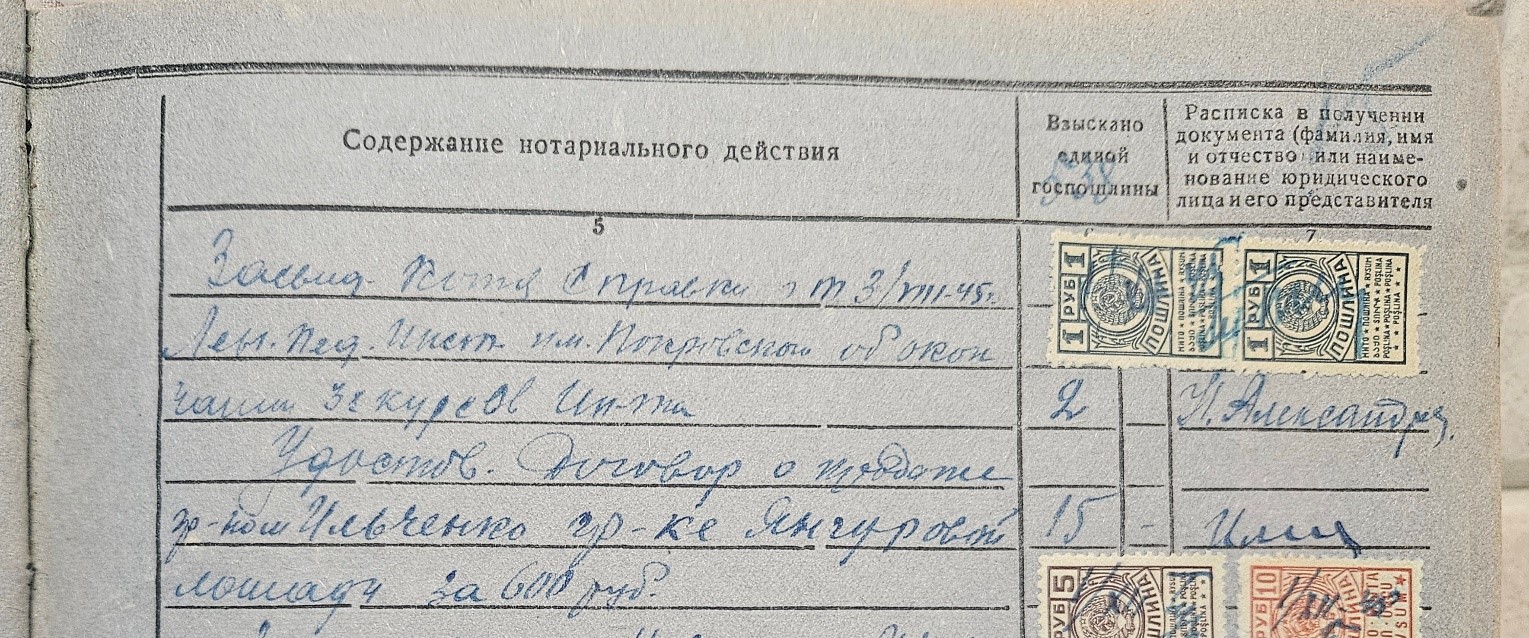 Содержание нотариального действия
Взыскано
единой
госпошлины
538
Расписка в получении
документа (фамилия, имя
и отчество или наиме-
нование юридического
лица и его представителя
5
7
Засвид. Копия Справки от 3/VIII-45г.
1 РУБ 1
ПОШЛИНА
1 РУБ 1
ПОШЛИНА
Лен. Пед Инст им. Покровского об окон
чании 3х курсов Ин-та
2
Н. Александр
Удостов. Договор о продаже
гр-ном Ильченко гр-ке Янгуровой
15 -
лошади за 600 руб.
РУБ 5
ПОШЛИНА
РУБ 10